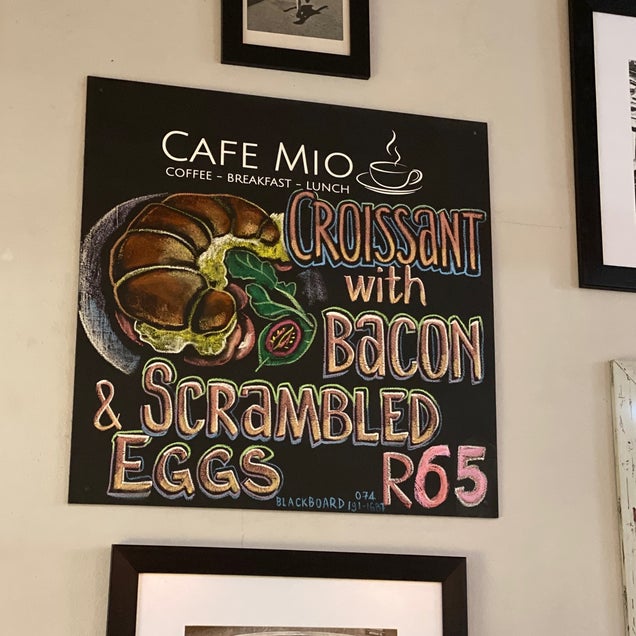 CAFE MIO
COFFEE - BREAKFAST - LUNCH
CROISSANT
with
BACON
& SCRAMBLED
EGGS
R65
BLACKBOARD 074